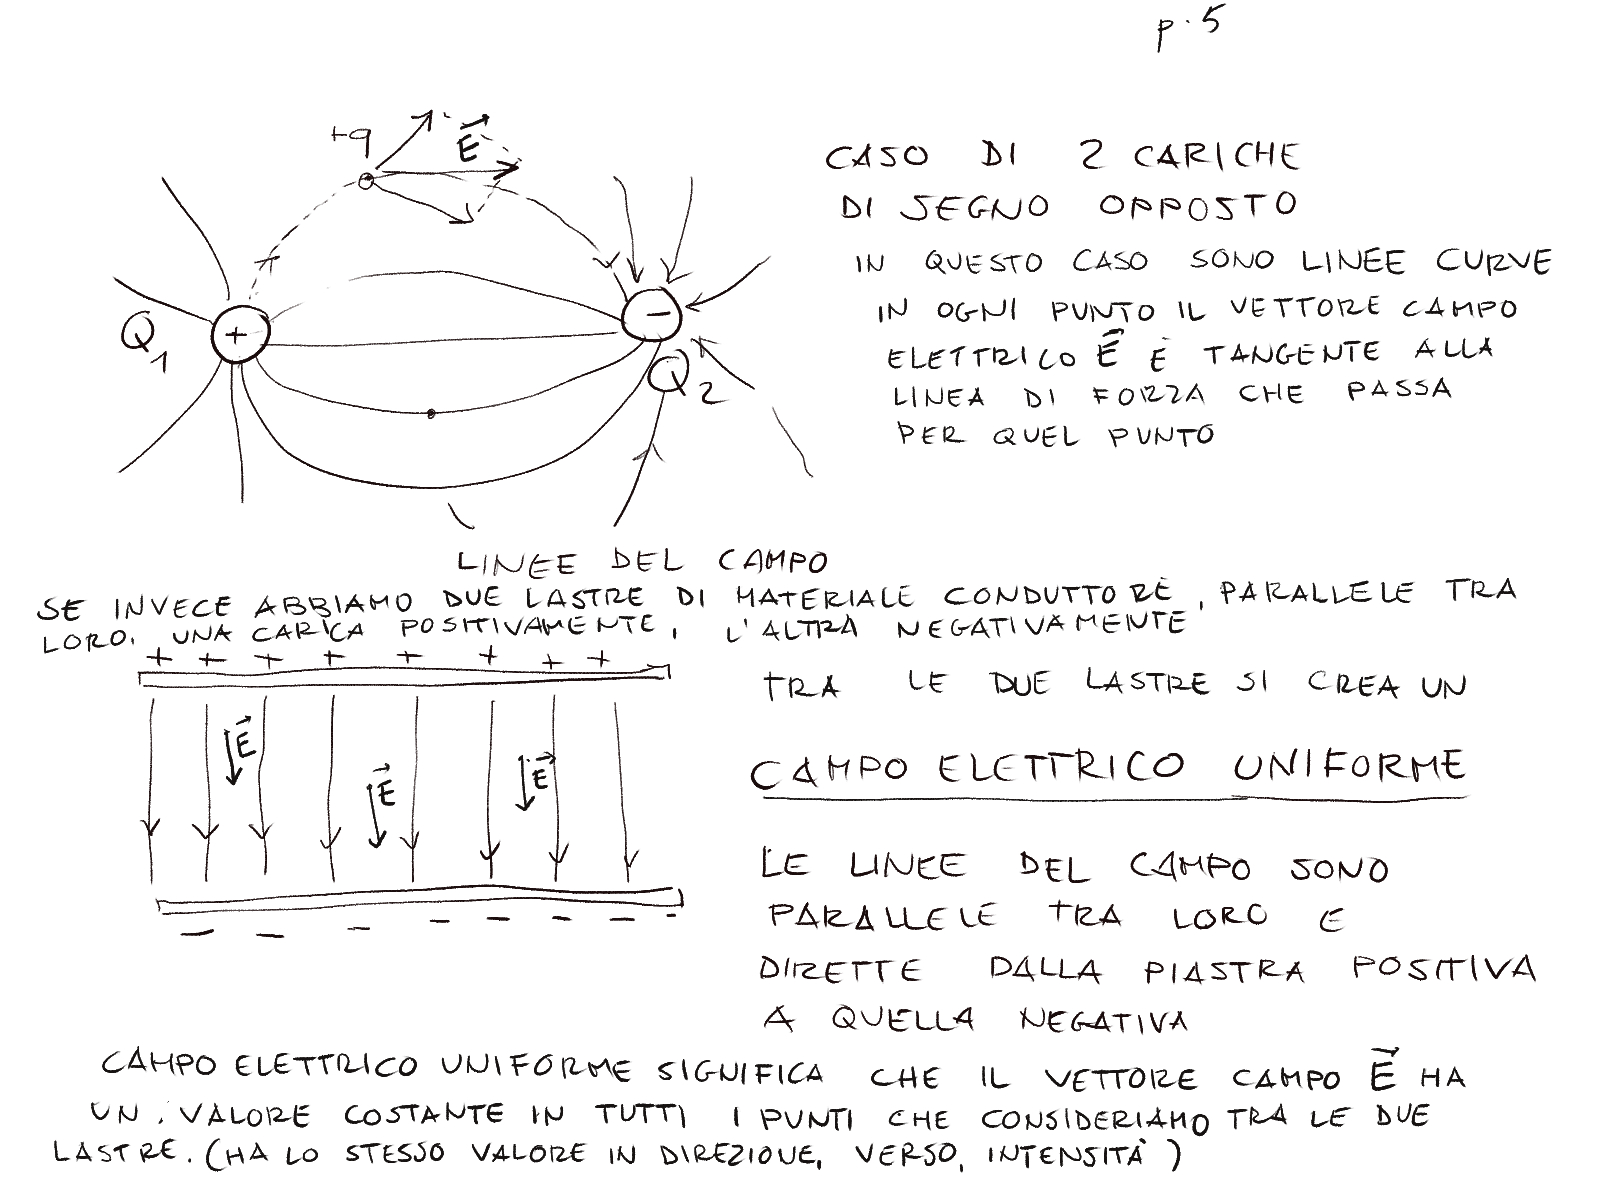 p. 5
+q
E
Q1
+
-
Q2
CASO DI 2 CARICHE
DI SEGNO OPPOSTO
IN QUESTO CASO SONO LINEE CURVE
IN OGNI PUNTO IL VETTORE CAMPO
ELETTRICO E È TANGENTE ALLA
LINEA DI FORZA CHE PASSA
PER QUEL PUNTO
LINEE DEL CAMPO
SE INVECE ABBIAMO DUE LASTRE DI MATERIALE CONDUTTORE, PARALLELE TRA
LORO, UNA CARICA POSITIVAMENTE, L'ALTRA NEGATIVAMENTE
+ + + + + + + +
E
E
E
- - - - - - - -
TRA LE DUE LASTRE SI CREA UN
CAMPO ELETTRICO UNIFORME
LE LINEE DEL CAMPO SONO
PARALLELE TRA LORO E
DIRETTE DALLA PIASTRA POSITIVA
A QUELLA NEGATIVA
CAMPO ELETTRICO UNIFORME SIGNIFICA CHE IL VETTORE CAMPO E HA
UN VALORE COSTANTE IN TUTTI I PUNTI CHE CONSIDERIAMO TRA LE DUE
LASTRE. (HA LO STESSO VALORE IN DIREZIONE, VERSO, INTENSITÀ)